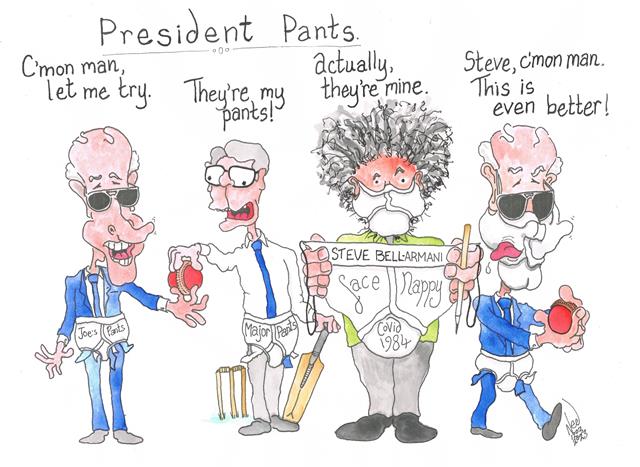 President Pants.
C'mon man,
let me try.
They're my
pants!
actually,
they're mine.
Steve, c'mon man.
This is
even better!
Joe's Pants
Major Pants
STEVE BELL-ARMANI
Face Nappy
Covid
1984